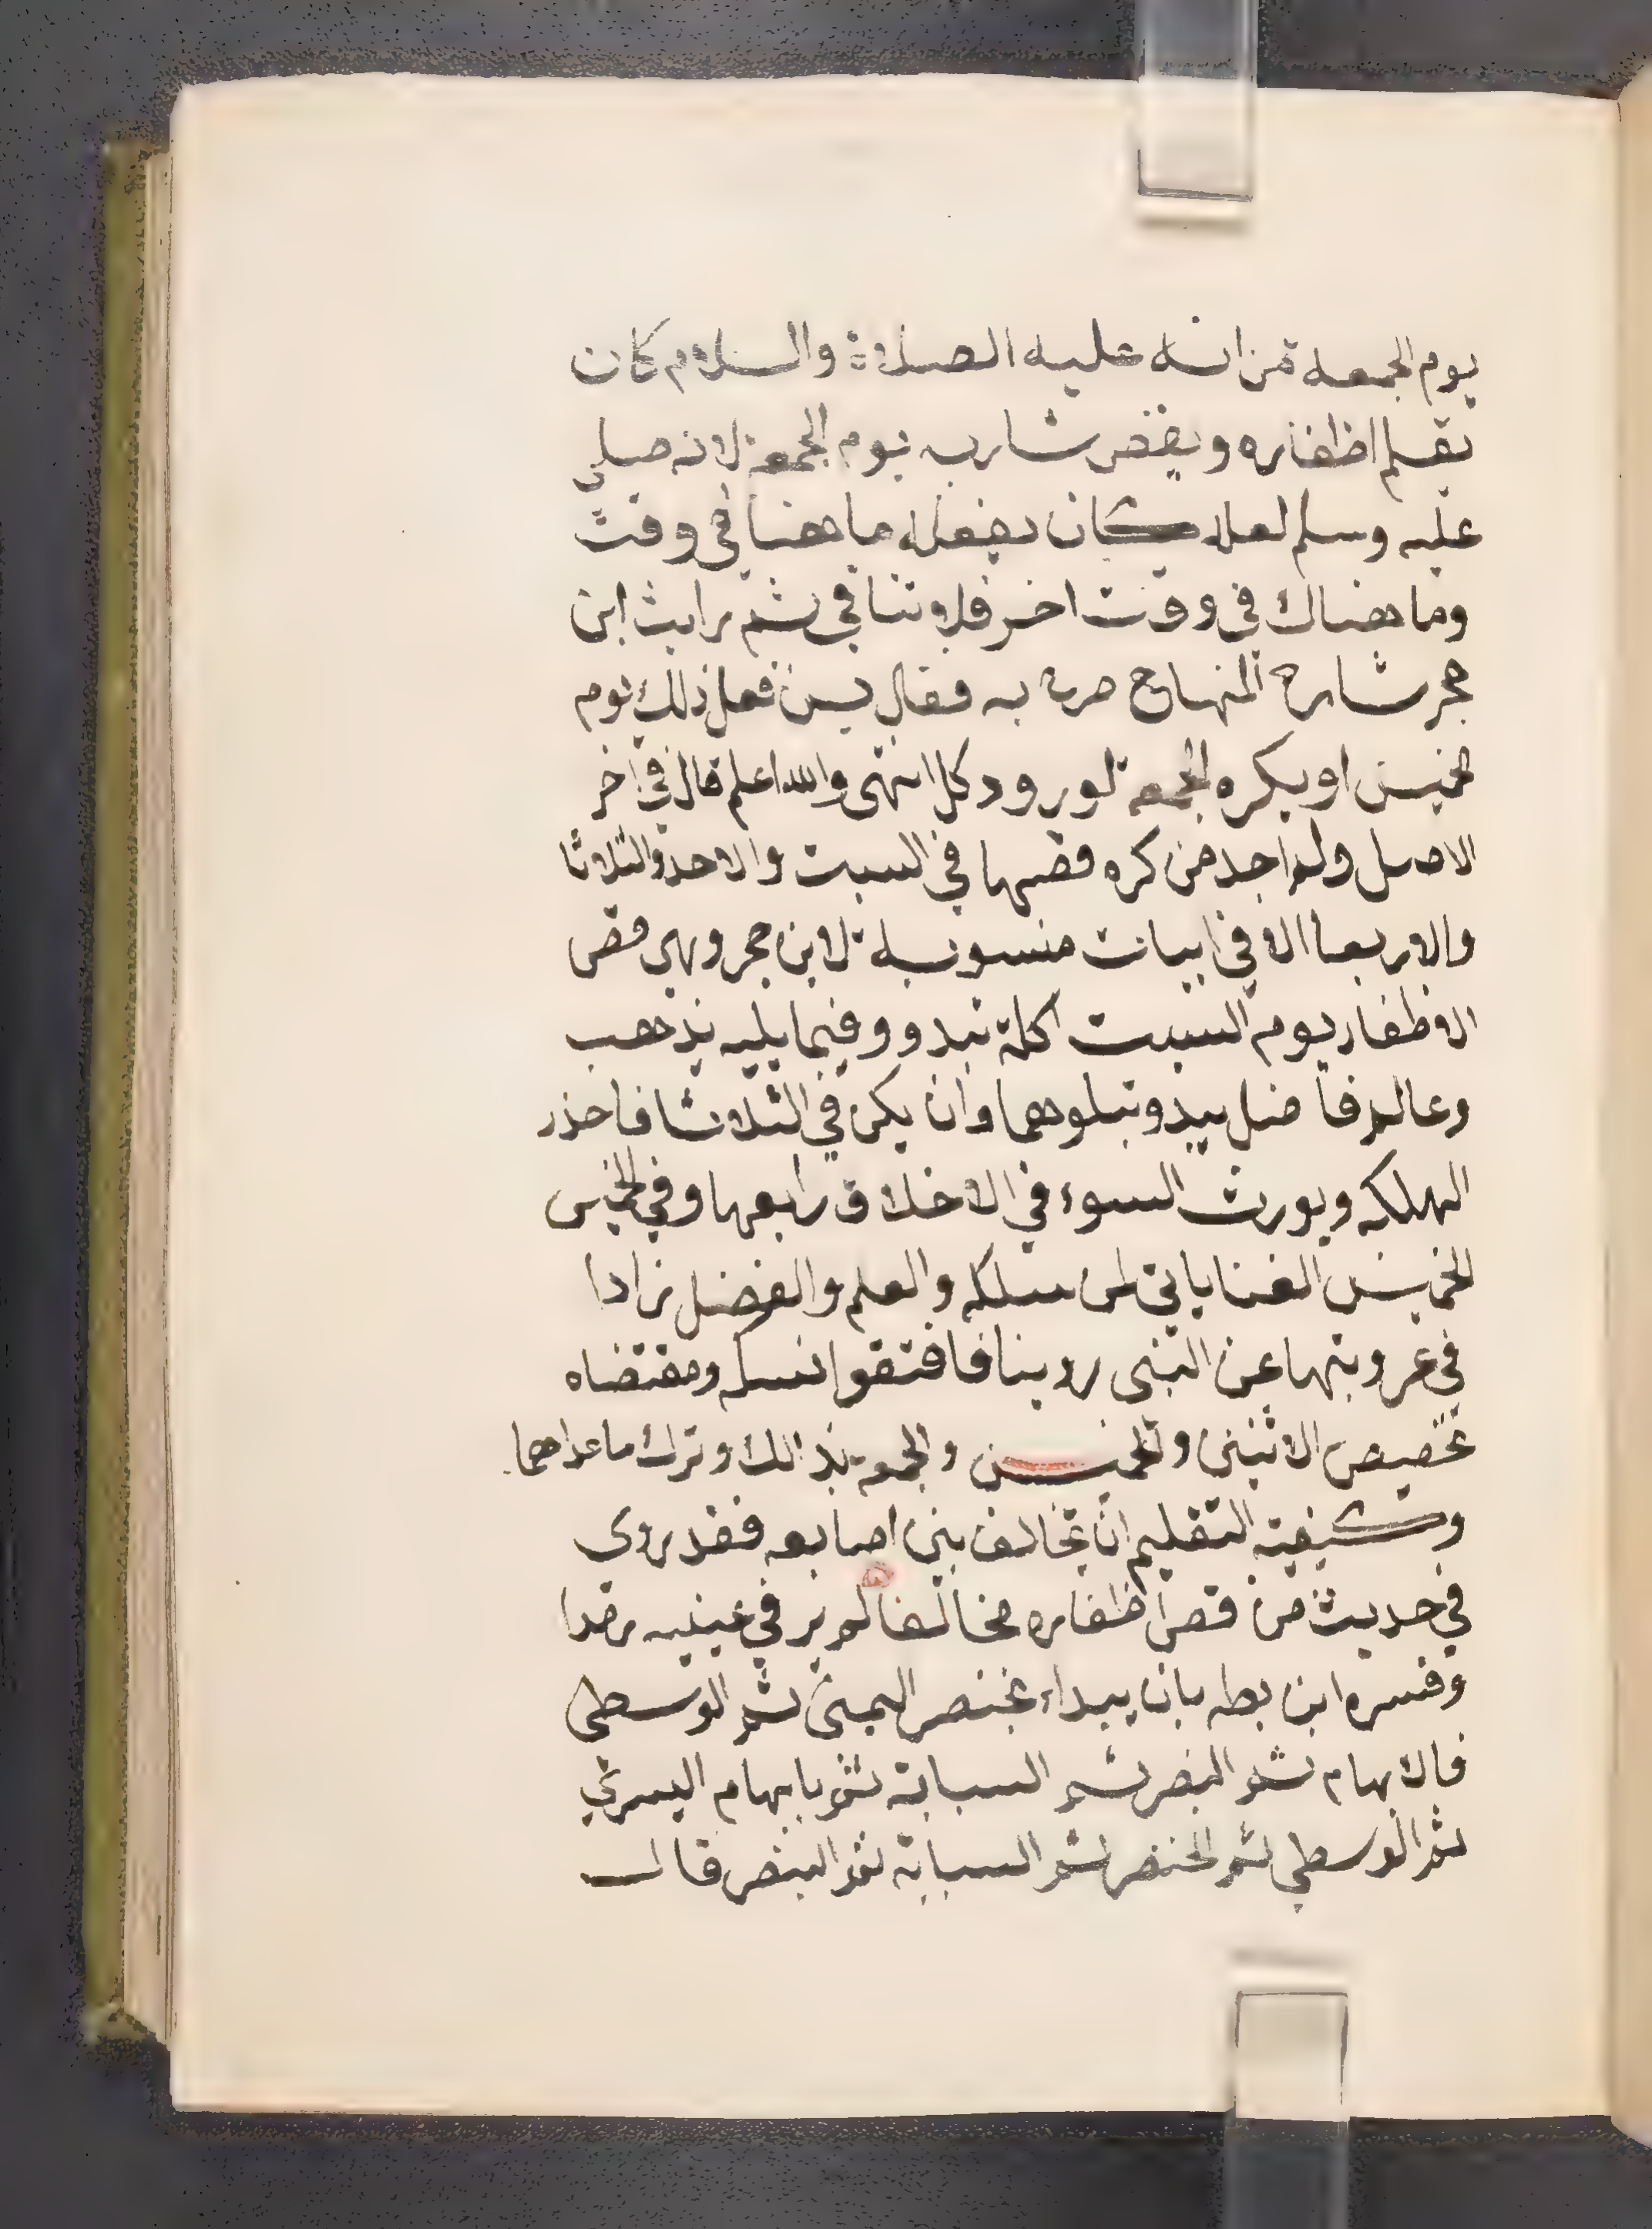 يوم الجمعه من انه عليه الصلاة والسلام كان
يقلم اظفاره ويقص شاربه يوم الجمعة لانه صلى
عليه وسلم لعله كان يفعل ما هنا في وقت
وما هناك في وقت اخر فلا تنافي ثم رايت ابن
حجر شارح المنهاج صرح به فقال يسن فعل ذلك يوم
خميس او بكره الجمعة لورود كل انتهى والله اعلم قال في اخر
الاصل ولم اجد من كره قصها في السبت والاحد والثلاثا
والاربعا الا في ابيات منسوبة لابن حجر وهي قص
الاظفار يوم السبت اكلة تبدو وفيما يليه يذهب
وعالم فاضل يبدو بتلوهما وان يكن في الثلاثا فاحذر
الهلكه ويورث السوء في الاخلاق رابعها وفي الخميس
الخميس الغنا ياتي لمن سلكه والعلم والفضل زادا
في عروبتها عن النبي روينا فاقتفوا نسكه ومقتضاه
تخصيص الاثنين والخميس والجمعة بذالك وترك ما عداهما
وكيفية التقليم ان تخالف بين اصابعه فقد روى
في حديث من قص اظفاره مخالفا لم ير في عينيه رمدا
وفسره ابن بطه بان يبداء بخنصر اليمنى ثم الوسطى
فالابهام ثم البنصر ثم السبابة ثم بابهام اليسرى
ثم الوسطى ثم الخنصر ثم السبابة ثم البنصر قال